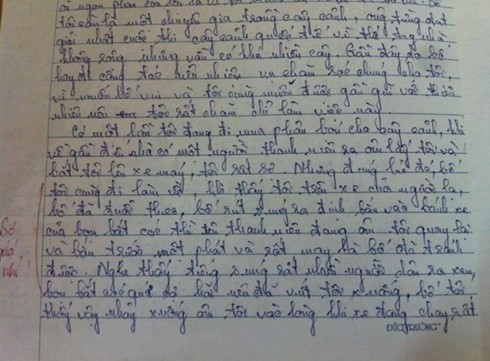 tôi còn là một chuyên gia trong cây cảnh, ông từng đạt
giải nhất cuộc thi cây cảnh quốc tế vì thế trong nhà
không rộng, nhưng vẫn có khá nhiều cây. Gần đây do bố
hay đi công tác nên nhiệm vụ chăm sóc chúng cho tôi,
vì muốn bố vui và tôi cũng muốn được gần gũi với thiên
nhiên nên tôi rất chăm chỉ làm việc này
Có một lần tôi đang đi mua phân bón cho cây cảnh, khi
về gần đến nhà có một người thanh niên ra ôm lấy tôi và
bắt tôi lên xe máy, tôi rất sợ. Nhưng đúng lúc đó, bố
tôi cũng đi làm về khi thấy tôi trên xe của người lạ,
bố đã đuổi theo, bố rút súng ra định bắn vào bánh xe
của bọn bắt cóc thì tên thanh niên đang ôm tôi quay lại
và bắn trước một phát và rất may là bố đã tránh
được. Nghe thấy tiếng súng rất nhiều người dân ra xem,
bọn bắt cóc quá sợ hãi nên đã vứt tôi xuống, bố tôi
thấy vậy nhảy xuống ôm tôi vào lòng khi xe đang chạy rất